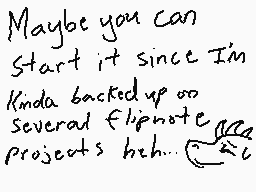 Maybe you can
start it since I'm
Kinda backed up on
several flipnote
projects heh...